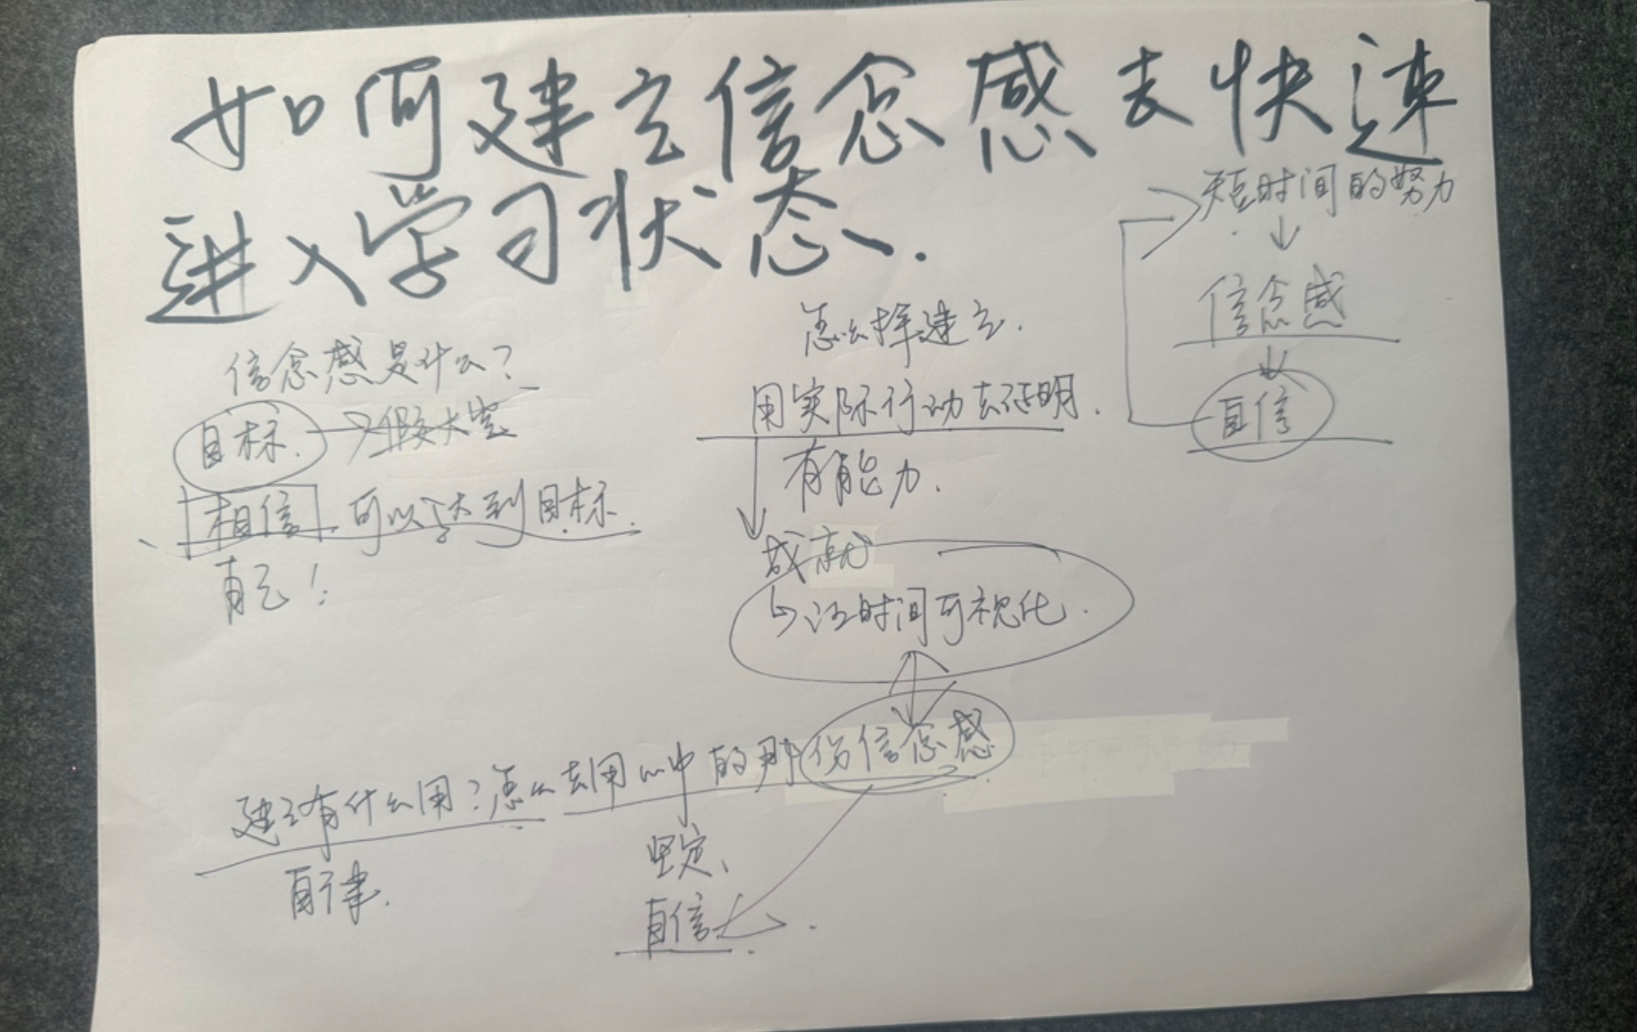 如何建立信念感去快速
进入学习状态.
信念感是什么？
目标. → 假大空
相信 可以达到目标.
自己！
怎么样建立.
用实际行动去证明.
有能力.
成就
让时间可视化.
短时间的努力
↓
信念感
↓
自信
建立有什么用？怎么去用心中的那份信念感
自律.
坚定、
自信.